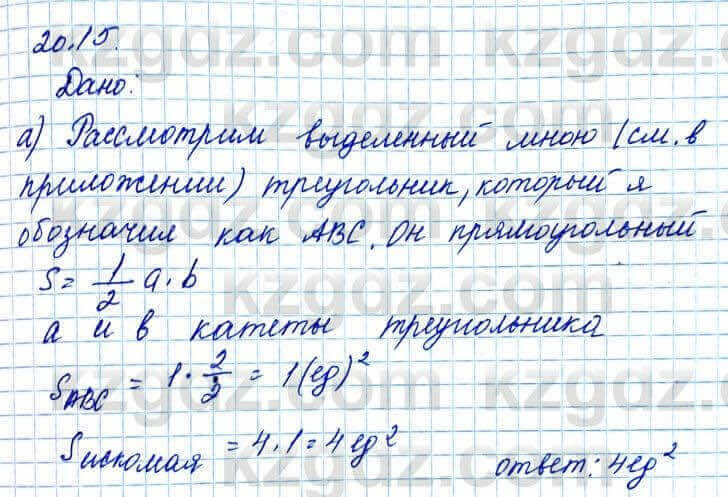 20.15.
Дано:
а) Рассмотрим выделенный мною (см. в
приложении) треугольник, который я
обозначил как ABC. Он прямоугольный
S = 1/2 a · b
а и в катеты треугольника
S ABC = 1 · 2/2 = 1 (ед)²
S искомая = 4 · 1 = 4 ед² ответ: 4 ед²
kzgdz.com